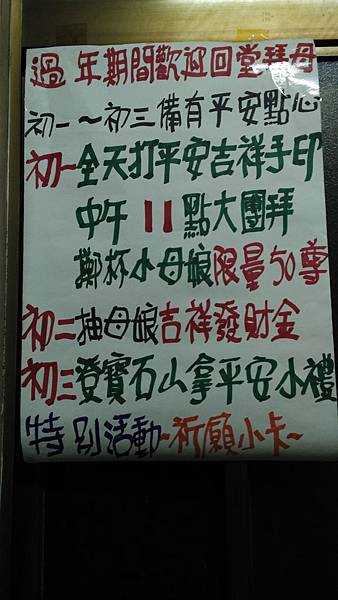 過年期間歡迎回堂拜母
初一～初三備有平安點心
初一全天打平安吉祥手印
中午11點大團拜
擲杯小母娘限量50尊
初二抽母娘吉祥發財金
初三登寶石山拿平安小禮
特別活動~祈願小卡~